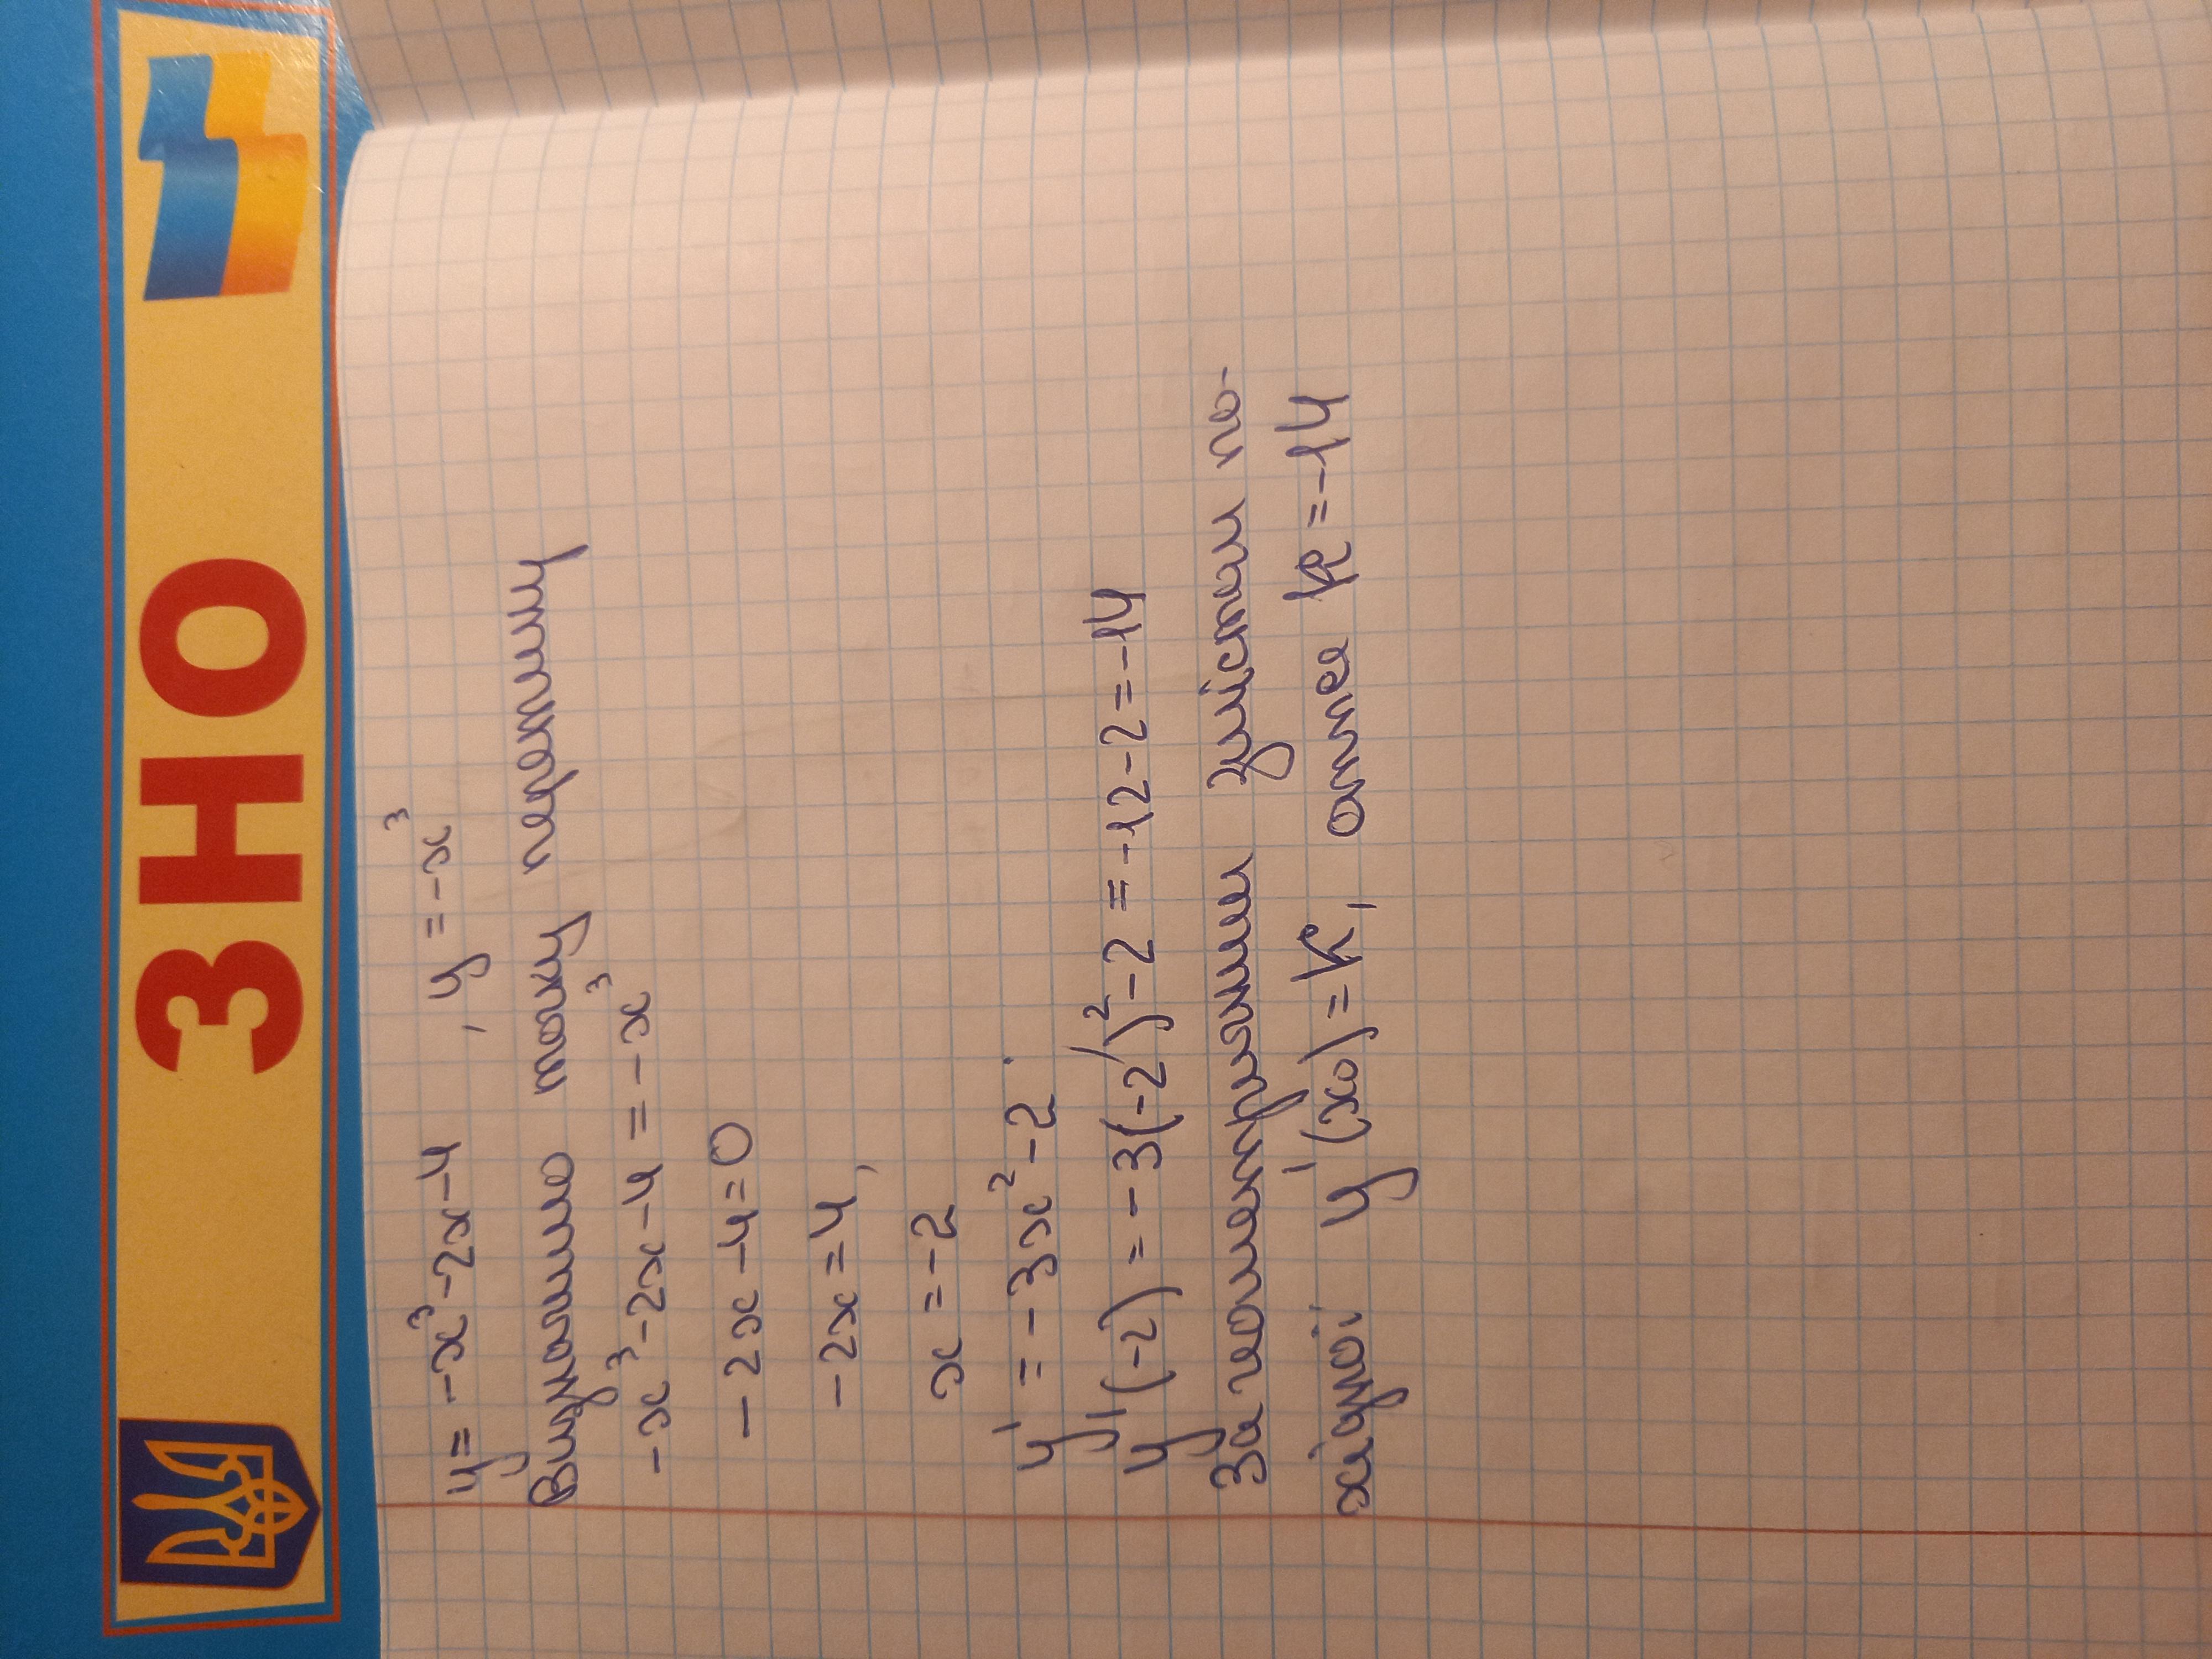 ЗНО
y = -x³-2x-4 , y = -x³
Визначимо точку перетину
-x³-2x-4 = -x³
-2x-4=0
-2x=4,
x = -2
y' = -3x²-2.
y'(-2) = -3(-2)²-2 = -12-2 = -14
За геометричним змістом по-
хідної: y'(x₀)=k, отже k = -14